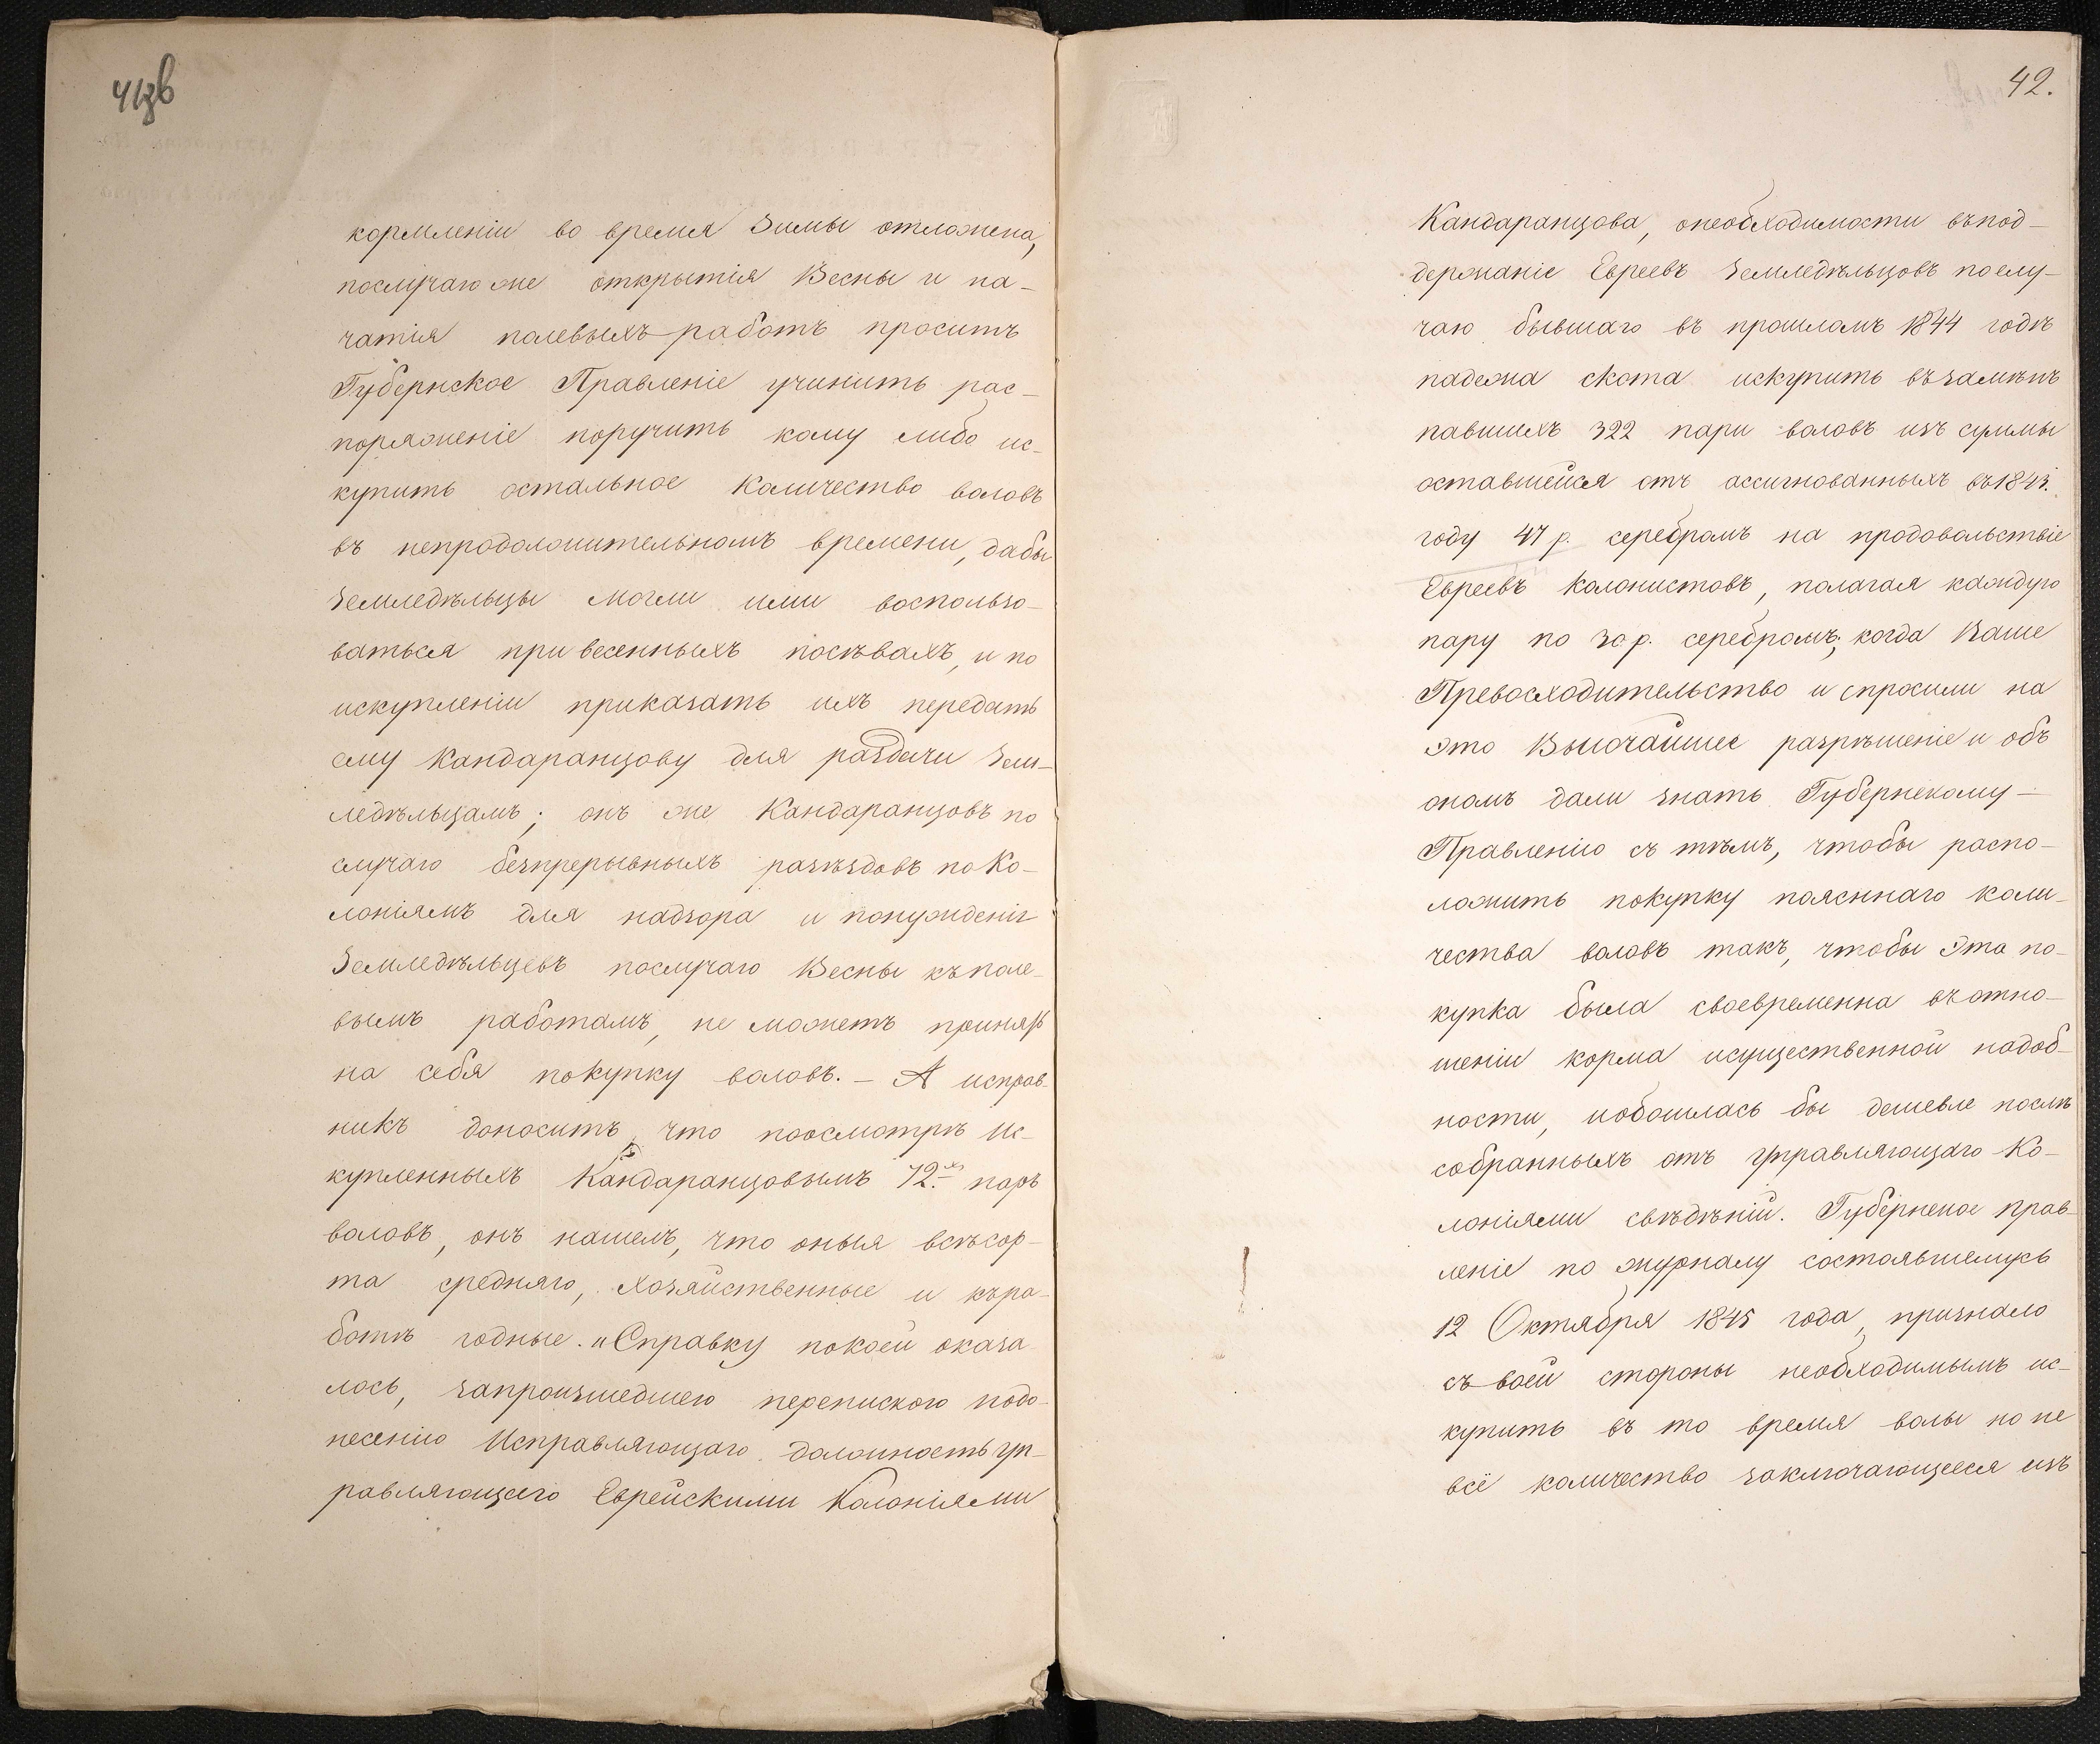 41зв
кормленіи во время Зимы отложена,
послучаю же открытія Весны и на-
чатія полевыхъ работъ проситъ
Губернское Правленіе учинить рас-
поряженіе поручить кому либо ис-
купить остальное количество воловъ
въ непродолжительномъ времени, дабы
Земледѣльцы могли ими воспользо-
ваться при весенныхъ посѣвахъ, и по
искупленіи приказать ихъ передать
ему Кандаранцову для раздачи Зем-
ледѣльцамъ; онъ же Кандаранцовъ по
случаю безпрерывныхъ разъѣздовъ по Ко-
лоніямъ для надзора и понужденія
Земледѣльцевъ послучаю Весны къ поле-
вымъ работамъ, не можетъ принять
на себя покупку воловъ. – А исправ-
никъ доноситъ, что поосмотрѣ Ис-
купленныхъ Кандаранцовымъ 72.хъ паръ
воловъ, онъ нашелъ, что оныя всѣ сор-
та средняго, хозяйственные и къ ра-
ботѣ годные. и Справку покоей оказа-
лось, запроизшедшею перепискою подо-
несенію Исправляющаго должность Уп-
равляющаго Еврейскими Колоніями
42.
Кандаранцова, онеобходимости въ под-
держаніе Евреевъ Земледѣльцовъ послу-
чаю бывшаго въ прошломъ 1844 годѣ
падежа скота искупить въ замѣнъ
павшихъ 322 пари воловъ изъ суммы
оставшейся отъ ассигнованныхъ въ 1843.
году 47 р. серебромъ на продовольствіе
Евреевъ Колонистовъ, полагая каждую
пару по 30 р. серебромъ; когда Ваше
Превосходительство и спросили на
это Высочайшее разрѣшеніе и объ
ономъ дали знать Губернскому –
Правленію съ тѣмъ, чтобы распо-
ложить покупку пояснаго коли-
чества воловъ такъ, чтобы эта по-
купка была своевременна въ отно-
шеніи корма исущественной надоб-
ности, иобошлась бы дешевле послѣ
собранныхъ отъ Управляющаго Ко-
лоніями свѣдѣній. Губернское Прав-
леніе по журналу состоявшемусь
12 Октября 1845 года, признало
съ воей стороны необходимымъ ис-
купить въ то время волы но не
всё количество заключающееся изъ